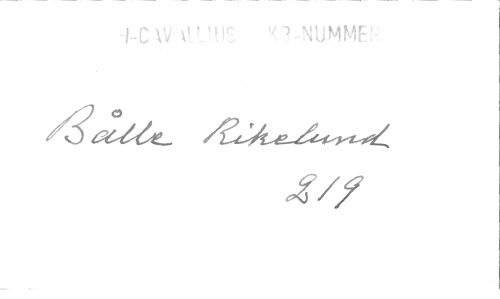 H-CAVALLIUS KB-NUMMER
Bålle Rikelund
219